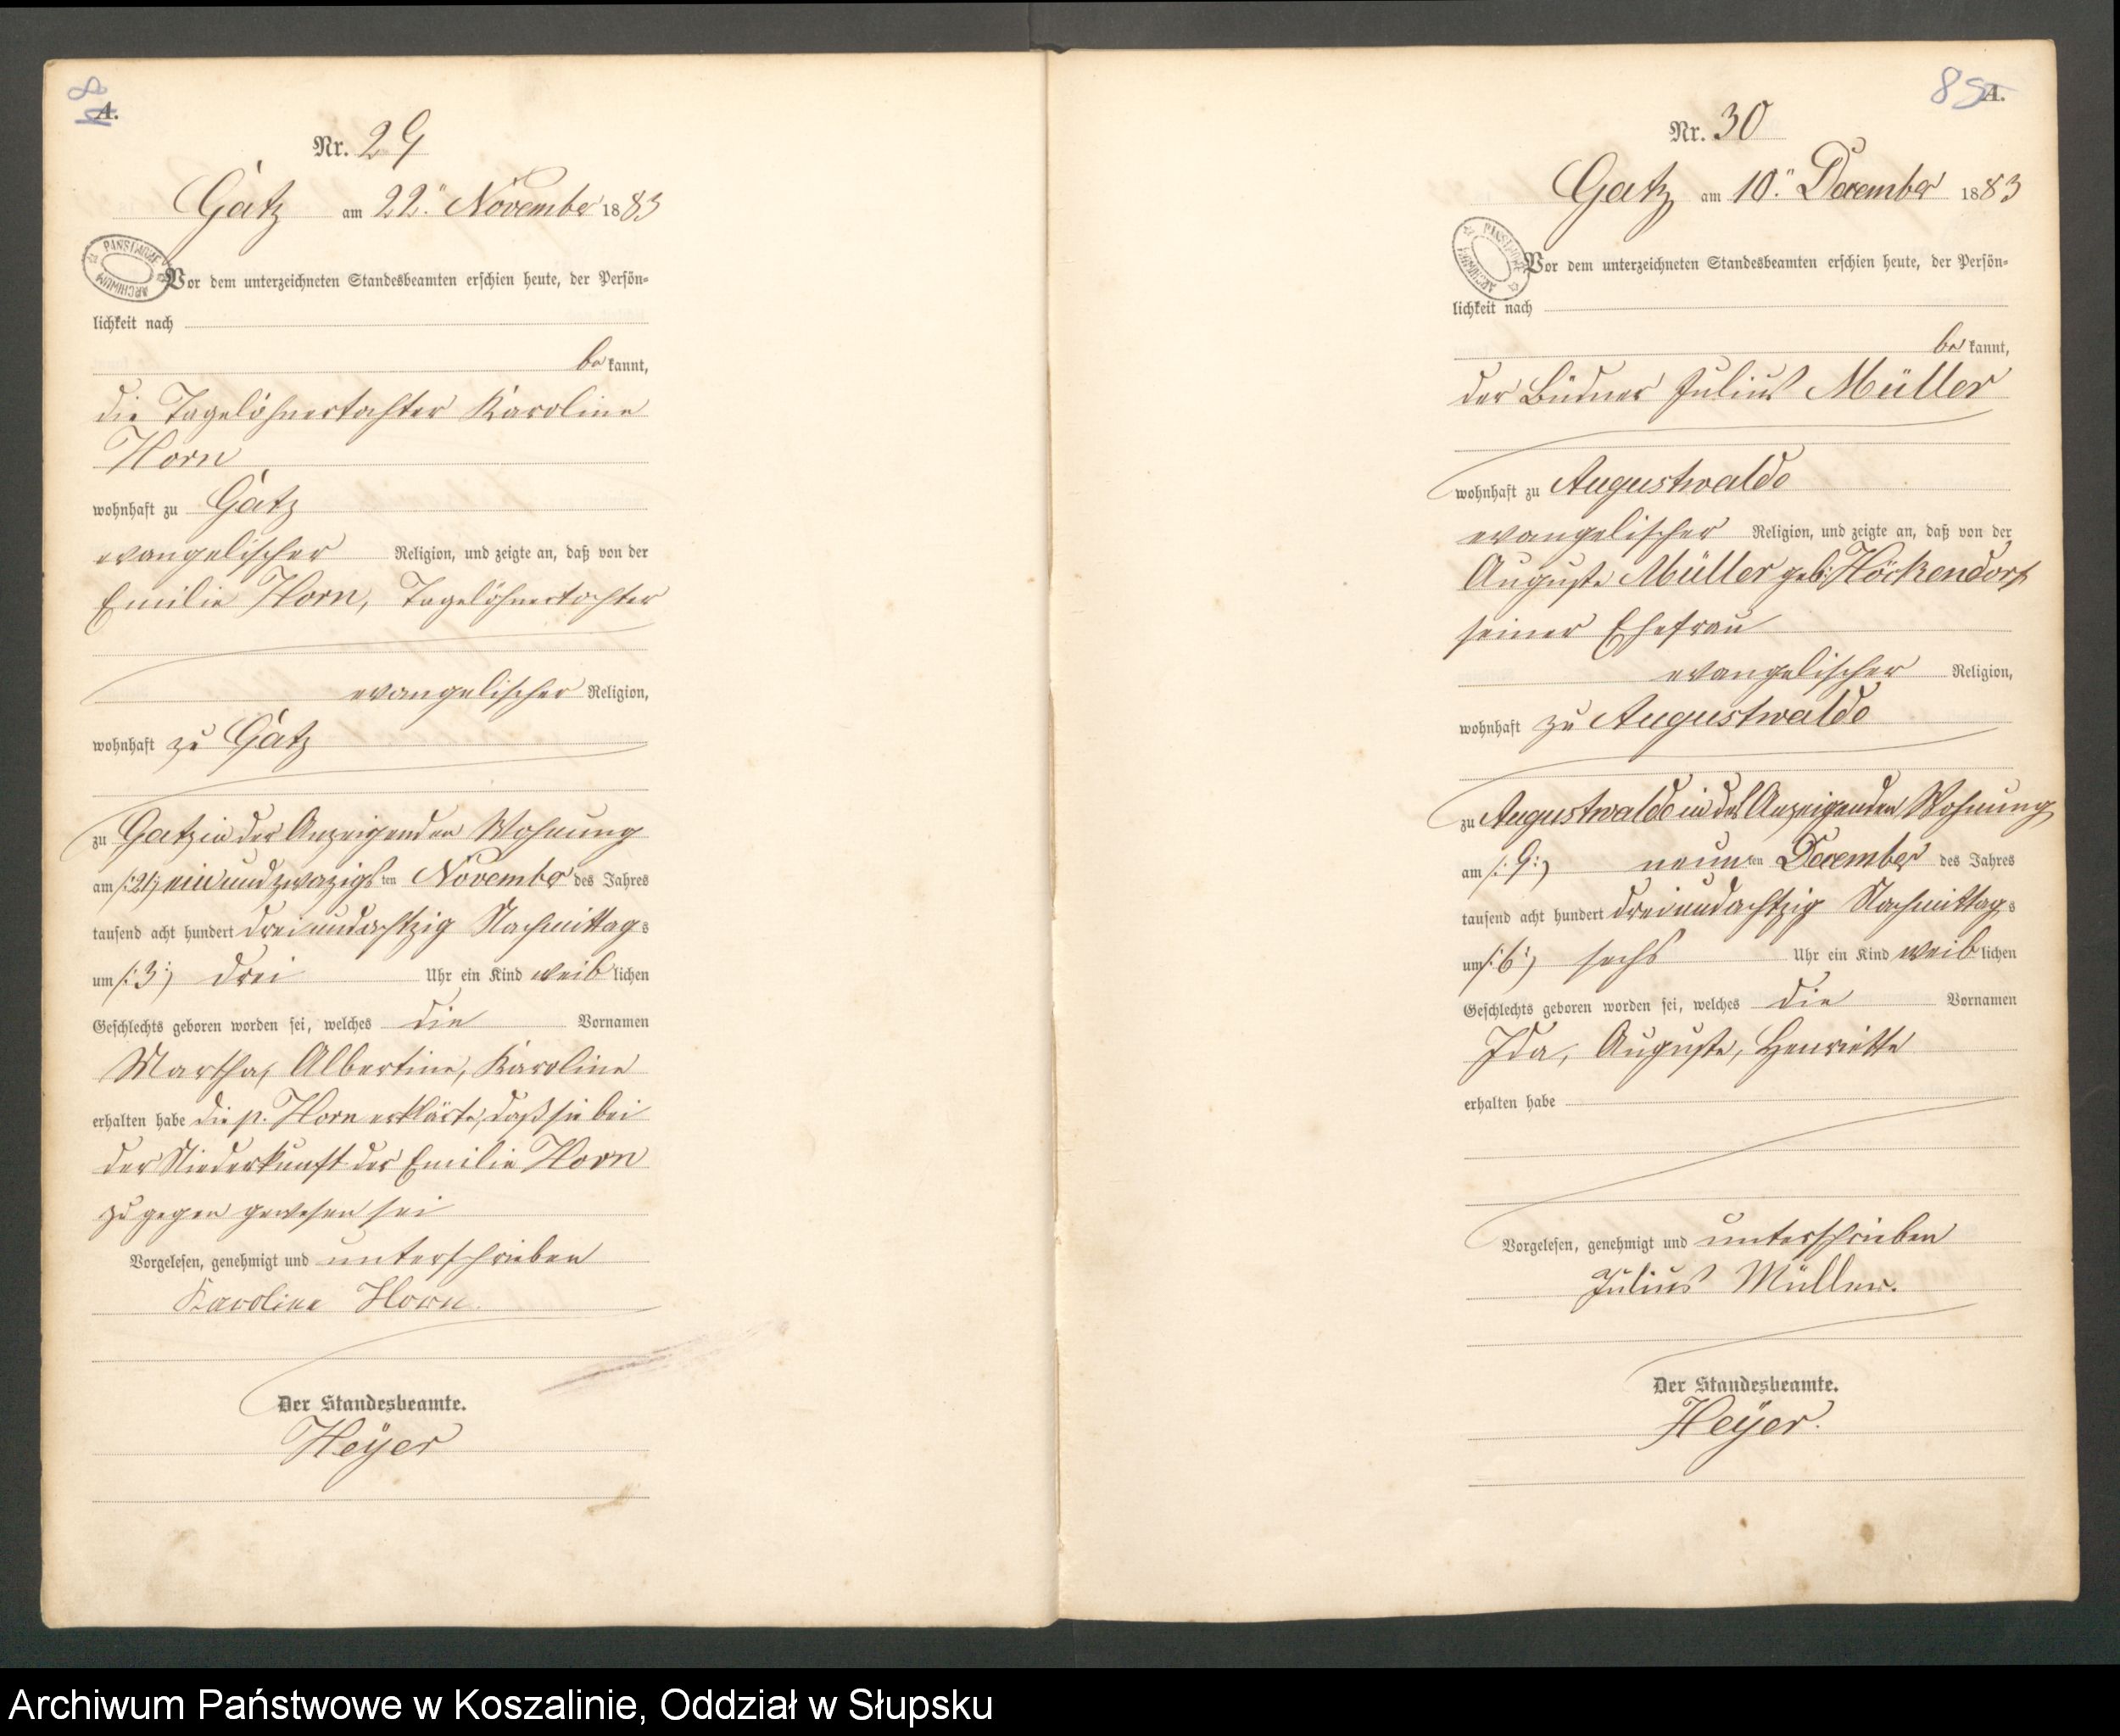 A.
Nr. 29
Gatz am 22. November 1883
PAŃSTWOWE ARCHIWUM
Vor dem unterzeichneten Standesbeamten erschien heute, der Persön-
lichkeit nach
be kannt,
die Tagelöhnertochter Karoline
Horn
wohnhaft zu Gatz
evangelischer Religion, und zeigte an, daß von der
Emilie Horn, Tagelöhnertochter
evangelischer Religion,
wohnhaft zu Gatz
zu Gatz in der Anzeigenden Wohnung
am /:21:/ einundzwazigs ten November des Jahres
tausend acht hundert dreiundachtzig Nachmittag s
um /:3:/ drei Uhr ein Kind weib lichen
Geschlechts geboren worden sei, welches die Vornamen
Martha, Albertine, Karoline
erhalten habe die p. Horn erklärte, daß sie bei
der Niederkunft der Emilie Horn
zugegen gewesen sei
Vorgelesen, genehmigt und unterschrieben
Karoline Horn.
Der Standesbeamte.
Heÿer
85
A.
Nr. 30
Gatz am 10. December 1883
PAŃSTWOWE ARCHIWUM
Vor dem unterzeichneten Standesbeamten erschien heute, der Persön-
lichkeit nach
be kannt,
der Büdner Julius Müller
wohnhaft zu Augustwalde
evangelischer Religion, und zeigte an, daß von der
Auguste Müller geb: Höckendorf
seiner Ehefrau
evangelischer Religion,
wohnhaft zu Augustwalde
zu Augustwalde in des Anzeigenden Wohnung
am /:9:/ neun ten December des Jahres
tausend acht hundert dreiundachtzig Nachmittag s
um /:6:/ sechs Uhr ein Kind weib lichen
Geschlechts geboren worden sei, welches die Vornamen
Ida, Auguste, Henriette
erhalten habe
Vorgelesen, genehmigt und unterschrieben
Julius Müller.
Der Standesbeamte.
Heÿer.
Archiwum Państwowe w Koszalinie, Oddział w Słupsku